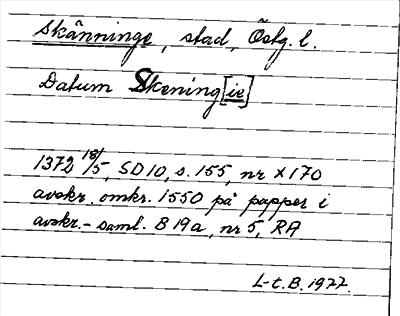 Skänninge, stad, Östg. l.
Datum Skening[ie]
1372 18/5, SD10, s. 155, nr X170
avskr. omkr. 1550 på papper i
avskr.- saml. B 19a, nr 5, RA
L-t. B. 1977.